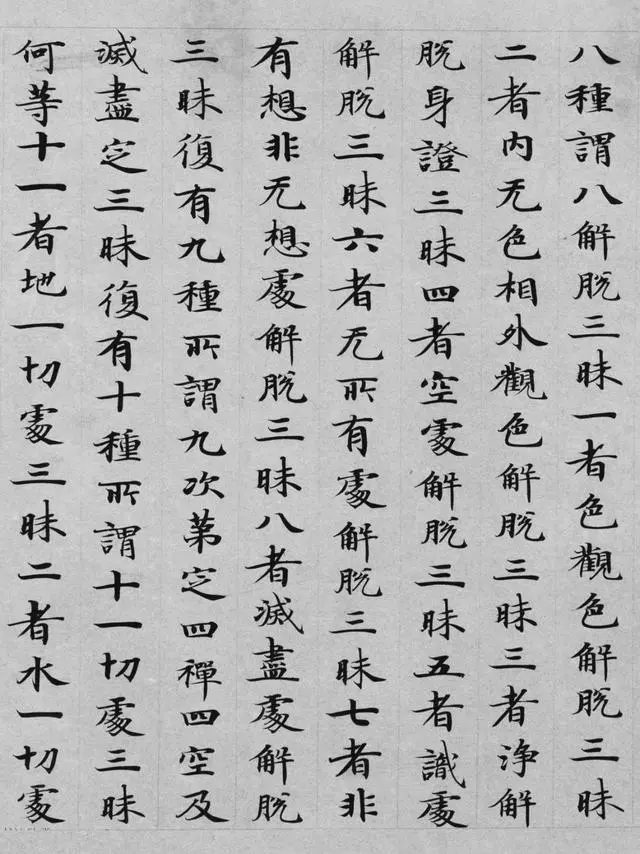 八種謂八解脫三昧一者色觀色解脫三昧
二者内无色相外觀色解脫三昧三者淨解
脫身證三昧四者空處解脫三昧五者識處
解脫三昧六者无所有處解脫三昧七者非
有想非无想處解脫三昧八者滅盡處解脫
三昧復有九種所謂九次第定四禪四空及
滅盡定三昧復有十種所謂十一切處三昧
何等十一者地一切處三昧二者水一切處